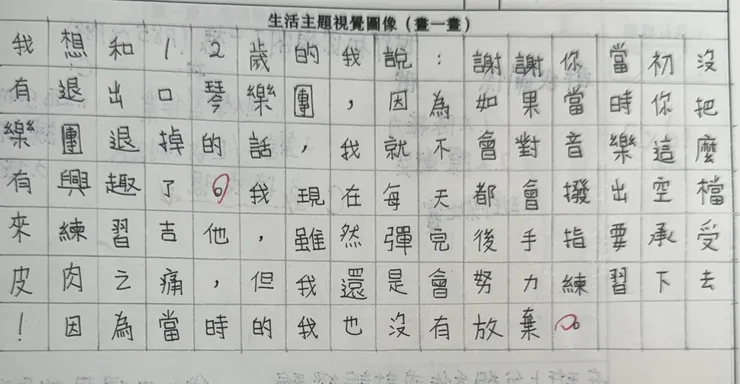 生活主題視覺圖像（畫一畫）
我想和12歲的我說：謝謝你當初沒
有退出口琴樂團，因為如果當時你把
樂團退掉的話，我就不會對音樂這麼
有興趣了。我現在每天都會撥出空檔
來練習吉他，雖然彈完後手指要承受
皮肉之痛，但我還是會努力練習下去
！因為當時的我也沒有放棄。